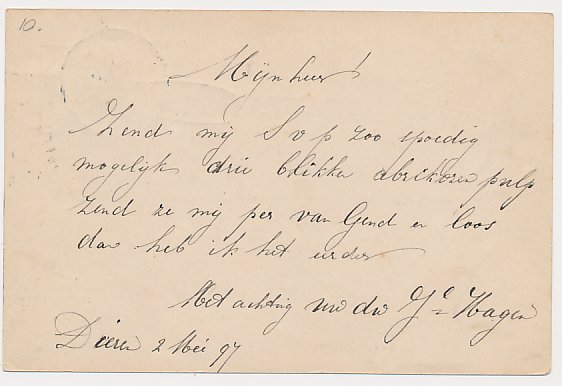 10.
Mijnheer!
Zend mij S v p zoo spoedig
mogelijk drie blikken abrikozen pulp
zend ze mij per van Gend en loos
dan heb ik het eerder
Met achting uw dw J^c Hagen
Dieren 2 Mei 97